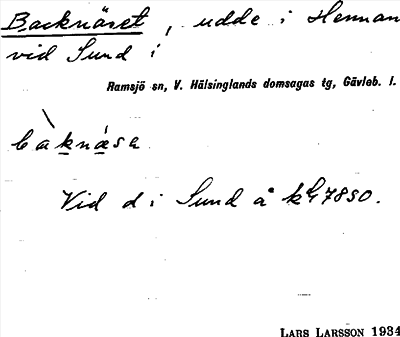 Backnäset, udde i Hennan
vid Sund i
Ramsjö sn, V. Hälsinglands domsagas tg, Gävleb. l.
bàknǽsa
Vid d i Sund å kbl 7850.
LARS LARSSON 1934